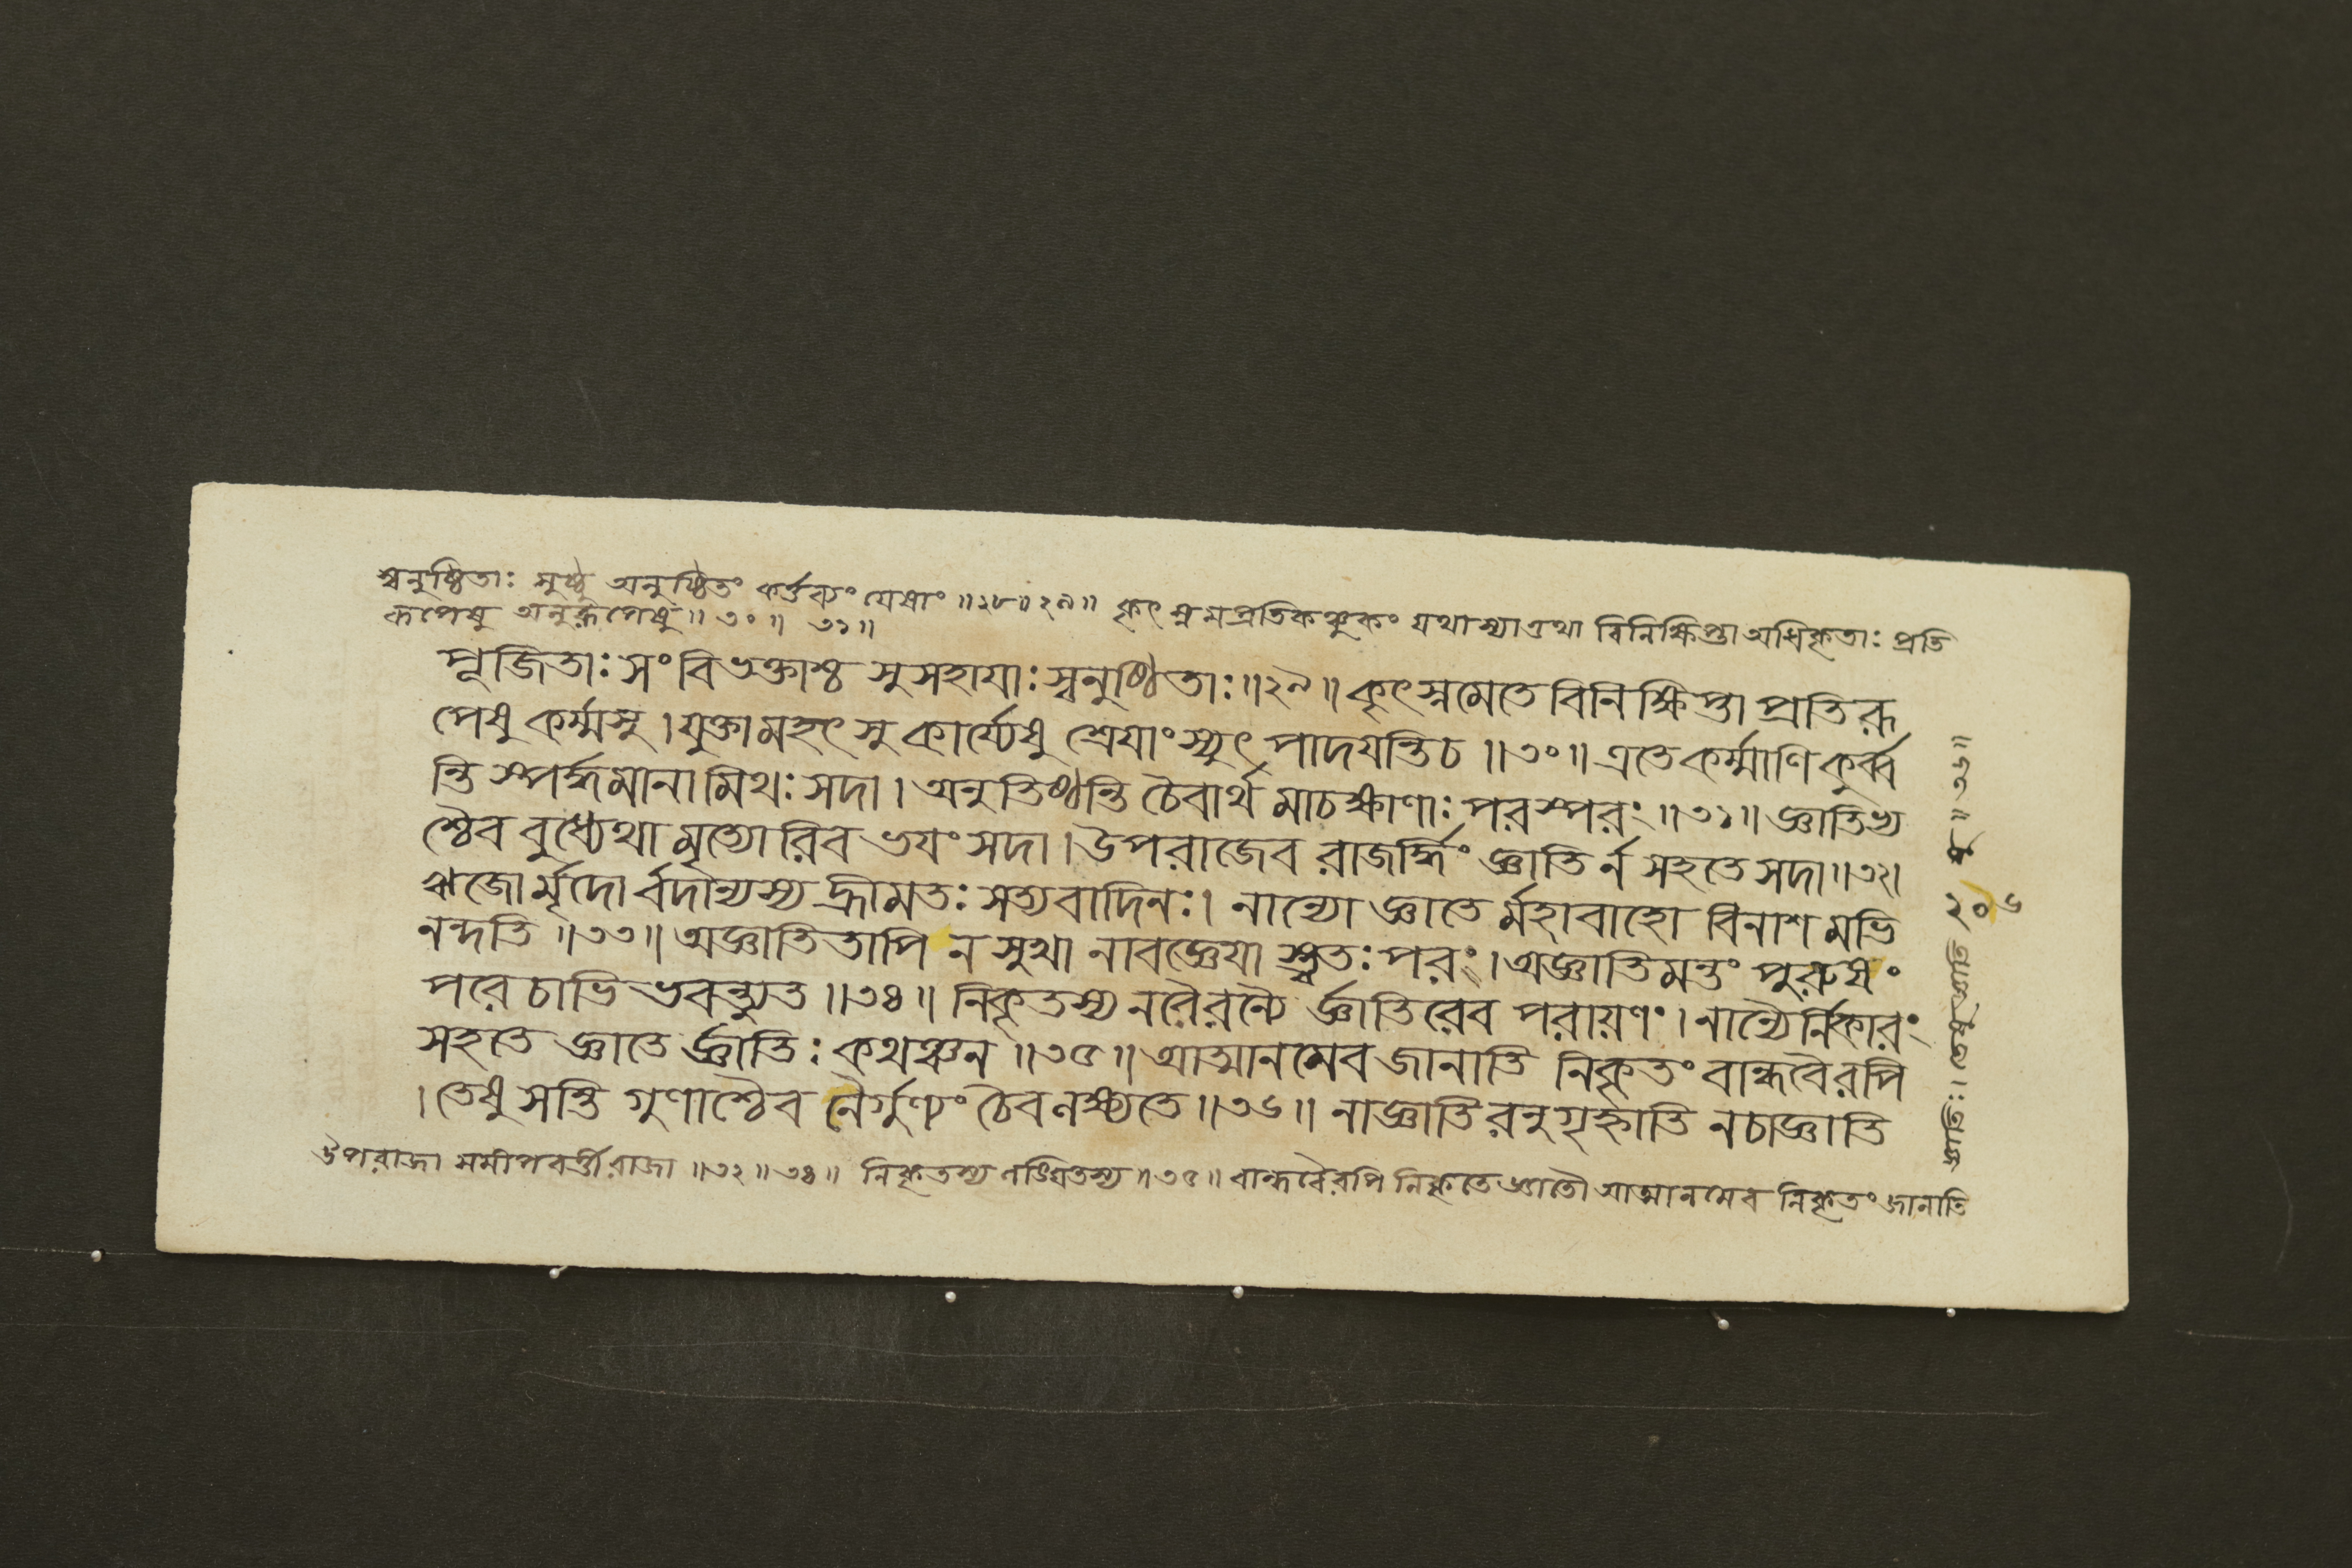 স্বনুষ্ঠিতাঃ সুষ্ঠু অনুষ্ঠিতং কর্ত্তব্যং যেষাং ॥২৮॥২৯॥ কৃৎস্নমপ্রতিকঞ্চুকং যথাস্যাত্তথা বিনিক্ষিপ্তা অধিকৃতাঃ প্রতি
রূপেষু অনুরূপেষু ॥৩০॥ ৩১॥
পূজিতাঃ সংবিভক্তাশ্চ সুসহাযাঃ স্বনুষ্ঠিতাঃ ॥২৯॥ কৃৎস্নমেতে বিনিক্ষিপ্তা প্রতিরূ
পেষু কর্ম্মসু । যুক্তা মহৎসু কার্য্যেষু শ্রেযাংস্যুৎপাদযন্তি চ ॥৩০॥ এতে কর্ম্মাণি কুর্ব্ব
ন্তি স্পর্দ্ধমানা মিথঃ সদা । অনুতিষ্ঠন্তি চৈবার্থমাচক্ষাণাঃ পরস্পরং ॥৩১॥ জ্ঞাতিভ্য
শ্চৈব বুধ্যেথা মৃত্যোরিব ভযং সদা । উপরাজেব রাজর্দ্ধিং জ্ঞাতির্ন সহতে সদা ॥৩২।
ঋজোর্মৃদোর্বদান্যস্য হ্রীমতঃ সত্যবাদিনঃ । নান্যো জ্ঞাতের্মহাবাহো বিনাশমভি
নন্দতি ॥৩৩॥ অজ্ঞাতিতাপি ন সুখা নাবজ্ঞেযাস্ত্বতঃ পরং । অজ্ঞাতিমন্তং পুরুষং
পরে চাভিভবন্ত্যুত ॥৩৪॥ নিকৃতস্য নরৈরন্যৈর্জ্ঞাতিরেব পরায়ণং । নান্যৈর্নিকারং
সহতে জ্ঞাতের্জ্ঞাতিঃ কথঞ্চন ॥৩৫॥ আত্মানমেব জানাতি নিকৃতং বান্ধবৈরপি
। তেষু সন্তি গুণাশ্চৈব নৈর্গুণ্যং চৈব লক্ষ্যতে ॥৩৬॥ নাজ্ঞাতিরনুগৃহ্নাতি নচাজ্ঞাতি
উপরাজা সমীপবর্ত্তী রাজা ॥৩২॥৩৪॥ নিকৃতস্য লঙ্ঘিতস্য ॥৩৫॥ বান্ধবৈরপি নিকৃতে জ্ঞাতৌ আত্মানমেব নিকৃতং জানাতি
জ্ঞাতিঃ । তেষু জ্ঞাতি ষু ॥৩৬॥
২০৬